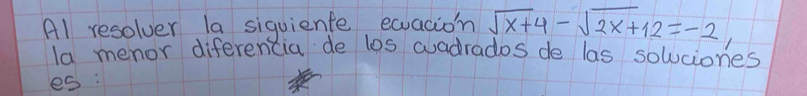 Al resolver la siguiente ecuación √x+4 - √2x+12 = -2,
la menor diferencia de los cuadrados de las soluciones
es: